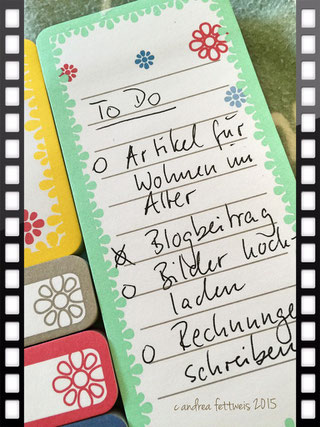 To Do
o Artikel für
Wohnen im
Alter
x Blogbeitrag
o Bilder hoch-
laden
o Rechnunge
schreiben
c andrea fettweis 2015